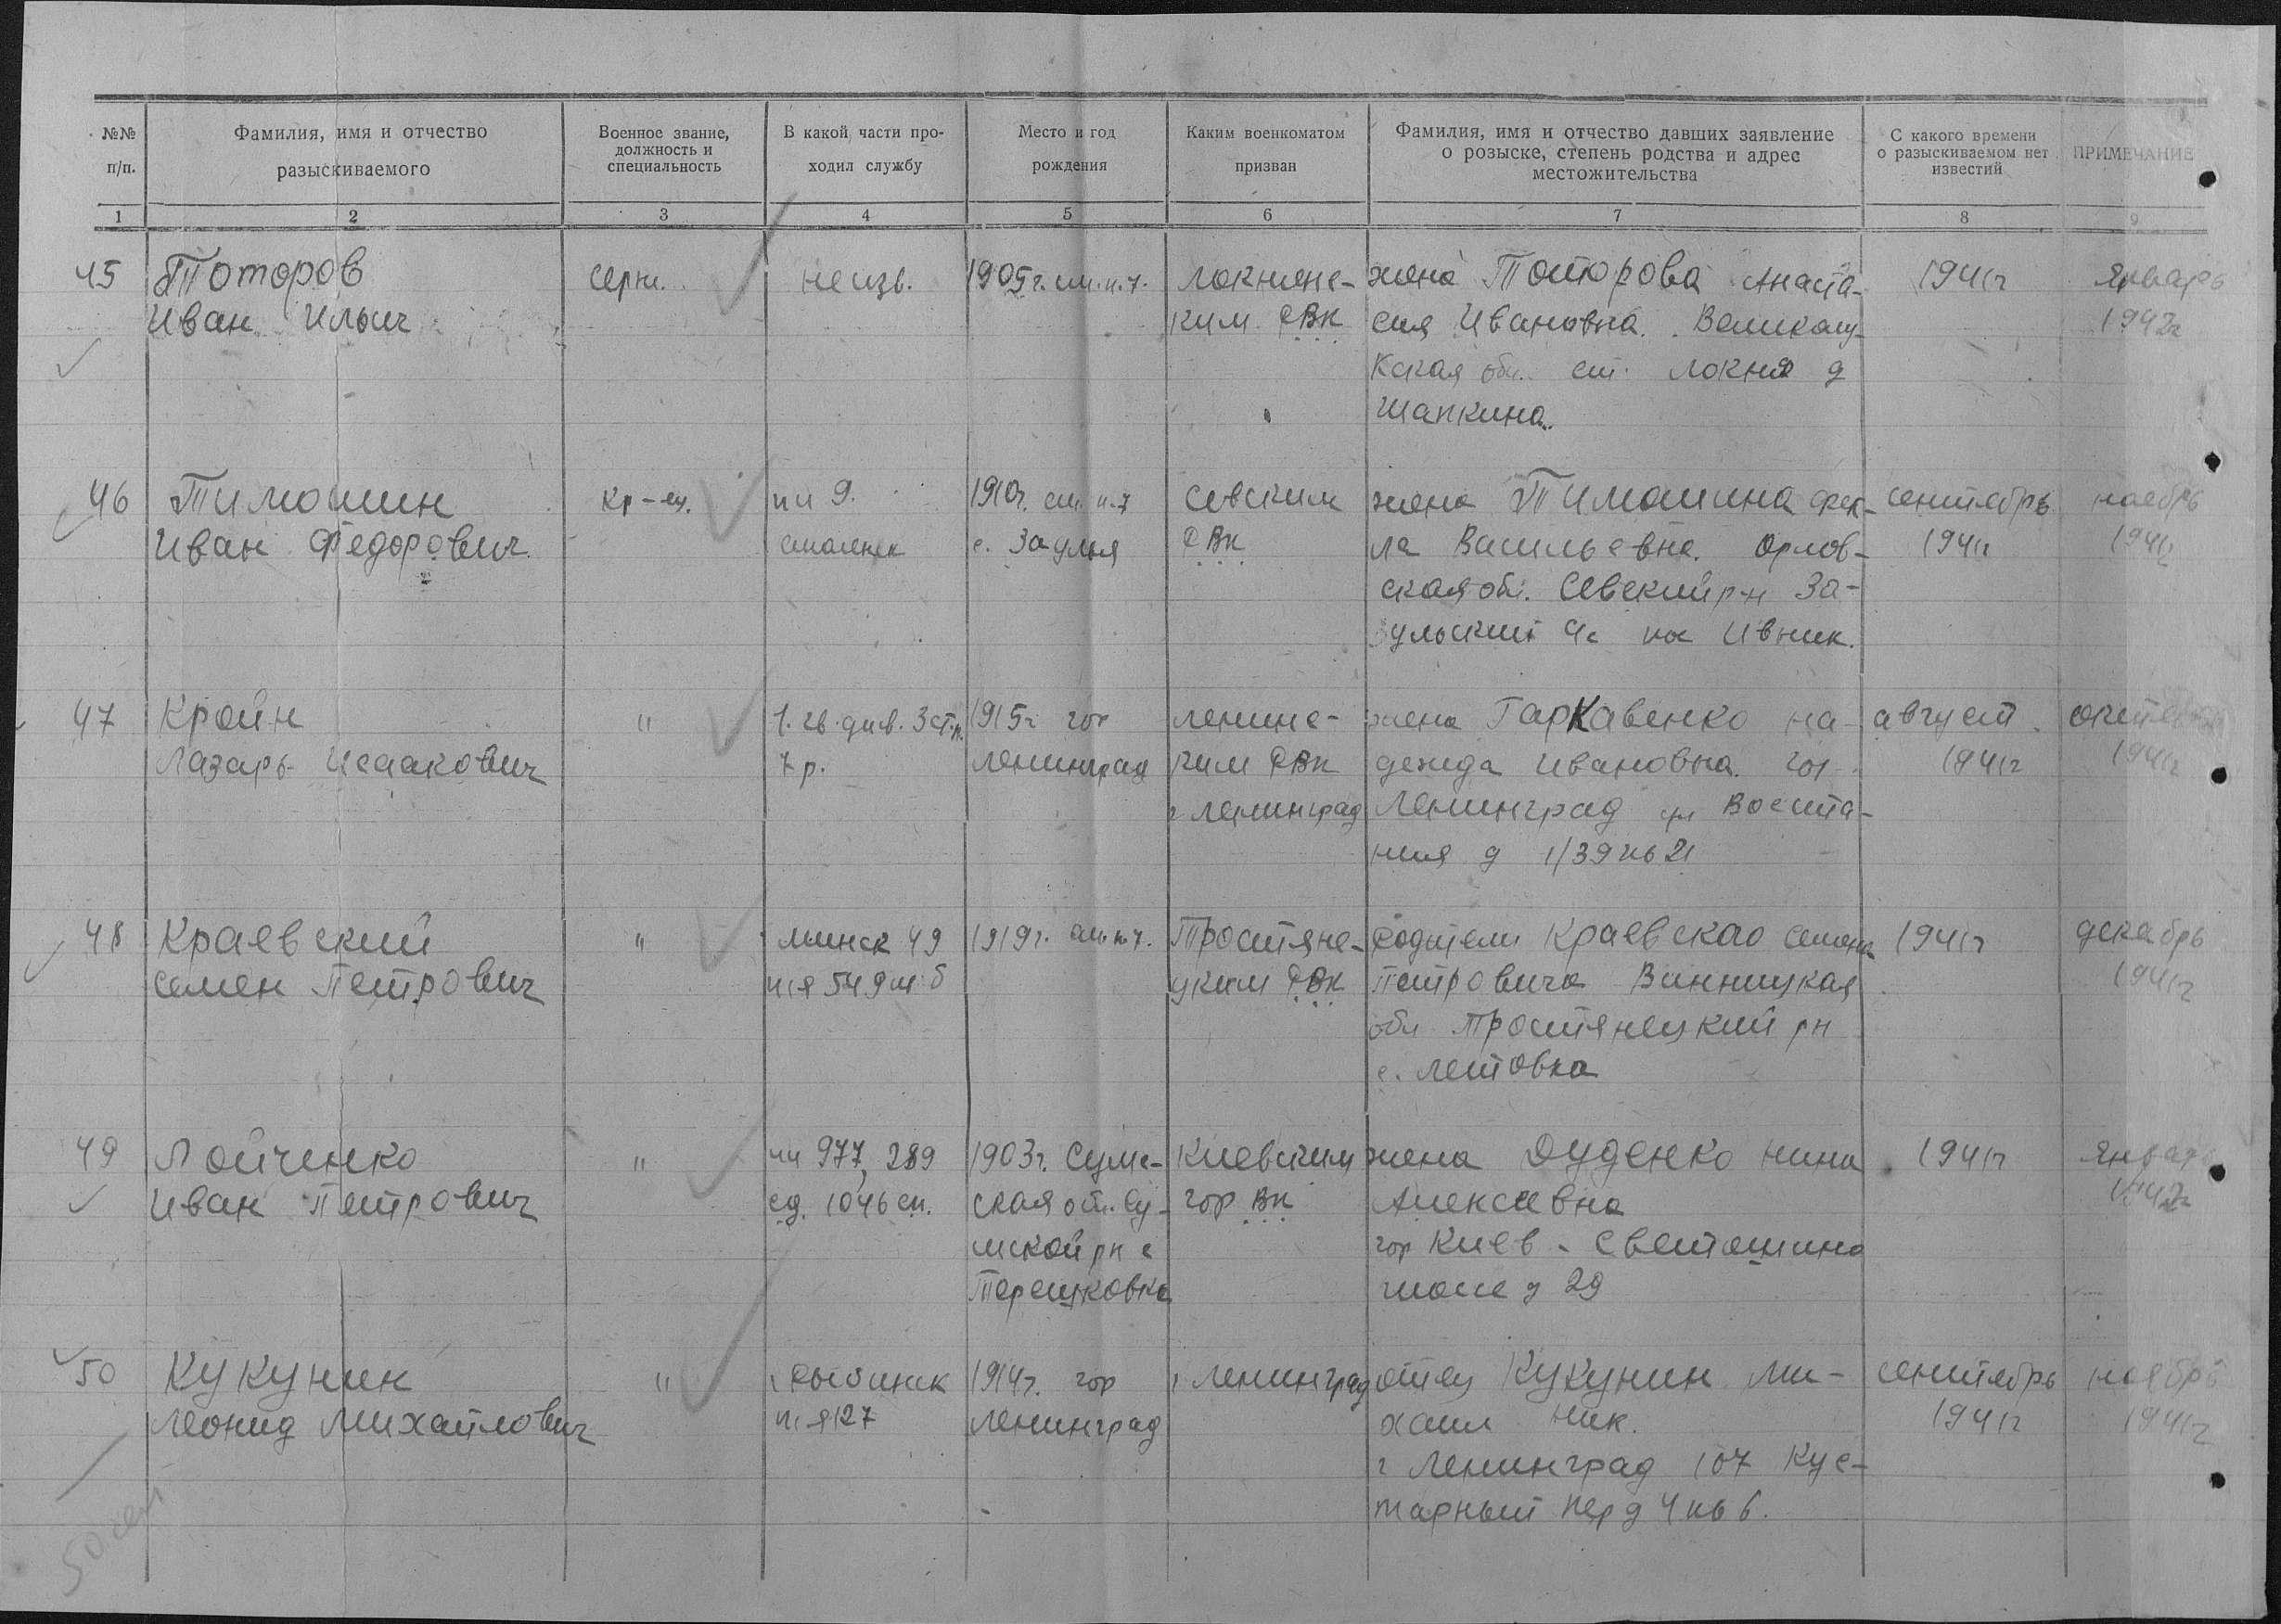 №№ п/п.
Фамилия, имя и отчество разыскиваемого
Военное звание, должность и специальность
В какой части проходил службу
Место и год рождения
Каким военкоматом призван
Фамилия, имя и отчество давших заявление о розыске, степень родства и адрес местожительства
С какого времени о разыскиваемом нет известий
ПРИМЕЧАНИЕ
1 2 3 4 5 6 7 8 9
45
Тоторов
Иван Ильич
серж.
неизв.
1905 г. см. п. 7.
Локнянс-
ким РВК
жена Тоторова Анаста-
сия Ивановна. Великолу-
кская обл. ст. Локня д
Шапкина.
1941г
Январь
1942г
46
Тимошин
Иван Федорович
кр-ец.
пя 9.
Смоленск
1910г. см. п. 7
с.
Севским
РВК
жена Тимошина Фек-
ла Васильевна. Орлов-
ская обл. Севский р-н За-
ульский с/с пос Ивник.
сентябрь
1941г
ноябрь
1941г
47
Кройн
Лазарь Исаакович
"
1. гв. див. 3 ст.п.
7 р.
1915г гор
Ленинград
Ленинс-
ким РВК
г Ленинград
жена Гаркавенко На-
дежда Ивановна. гор
Ленинград ул Восста-
ния д 1/39 кв 21
август
1941г
октябрь
1941г
48
Краевский
Семен Петрович
"
Минск 49
п/я 549
1919г. см п 7.
Тростяне-
цким РВК
родители Краевского Семена
Петровича Винницкая
обл Тростянецкий рн
с. Летовка
1941г
декабрь
1941г
49
Лойченко
Иван Петрович
"
пп 977, 289
сд. 1046 сп.
1903г. Сумс-
кая обл. Су-
мской рн с
Терешковка
Киевским
гор ВК
жена Дуденко Нина
Алексеевна
гор Киев - Святошино
шоссе д 29
1941г
Январь
1942г
50
Кукунин
Леонид Михайлович
"
г Рыбинск
п/я 127
1914г. гор
Ленинград
г Ленинград
отец Кукунин Ми-
хаил Ник.
г Ленинград 107 Кус-
тарный пер д 4 кв 6.
сентябрь
1941г
ноябрь
1941г
50 чел